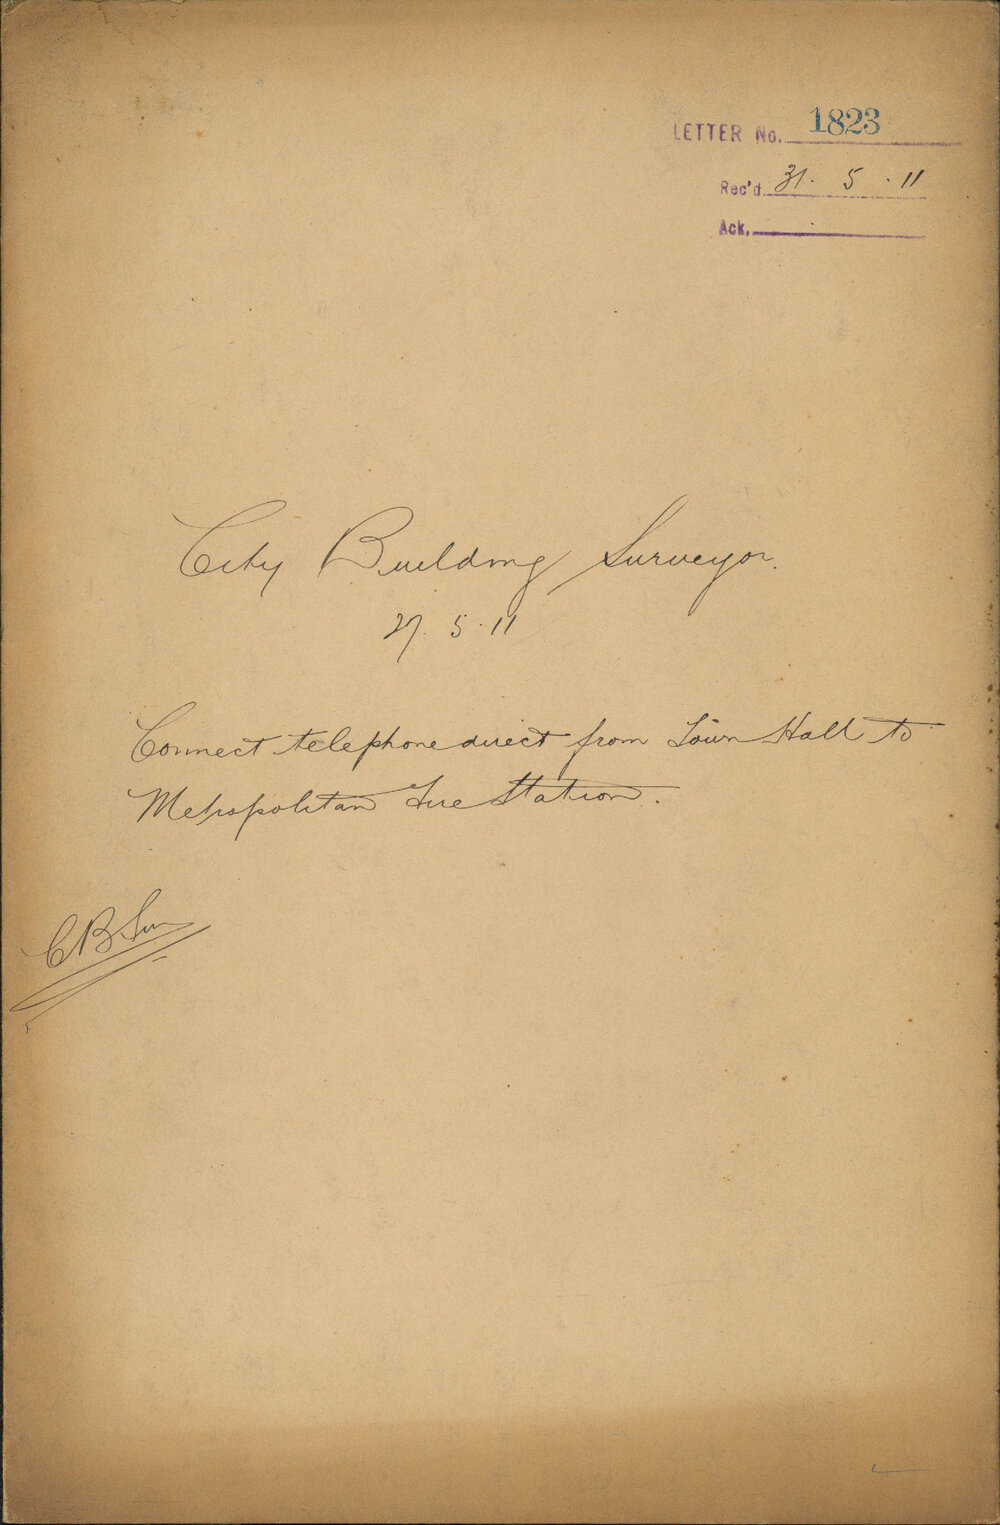 LETTER No. 1823
Rec'd 31. 5. 11
Ack.
City Building Surveyor.
27. 5. 11
Connect telephone direct from Town Hall to
Metropolitan Fire Station.
C B Sur